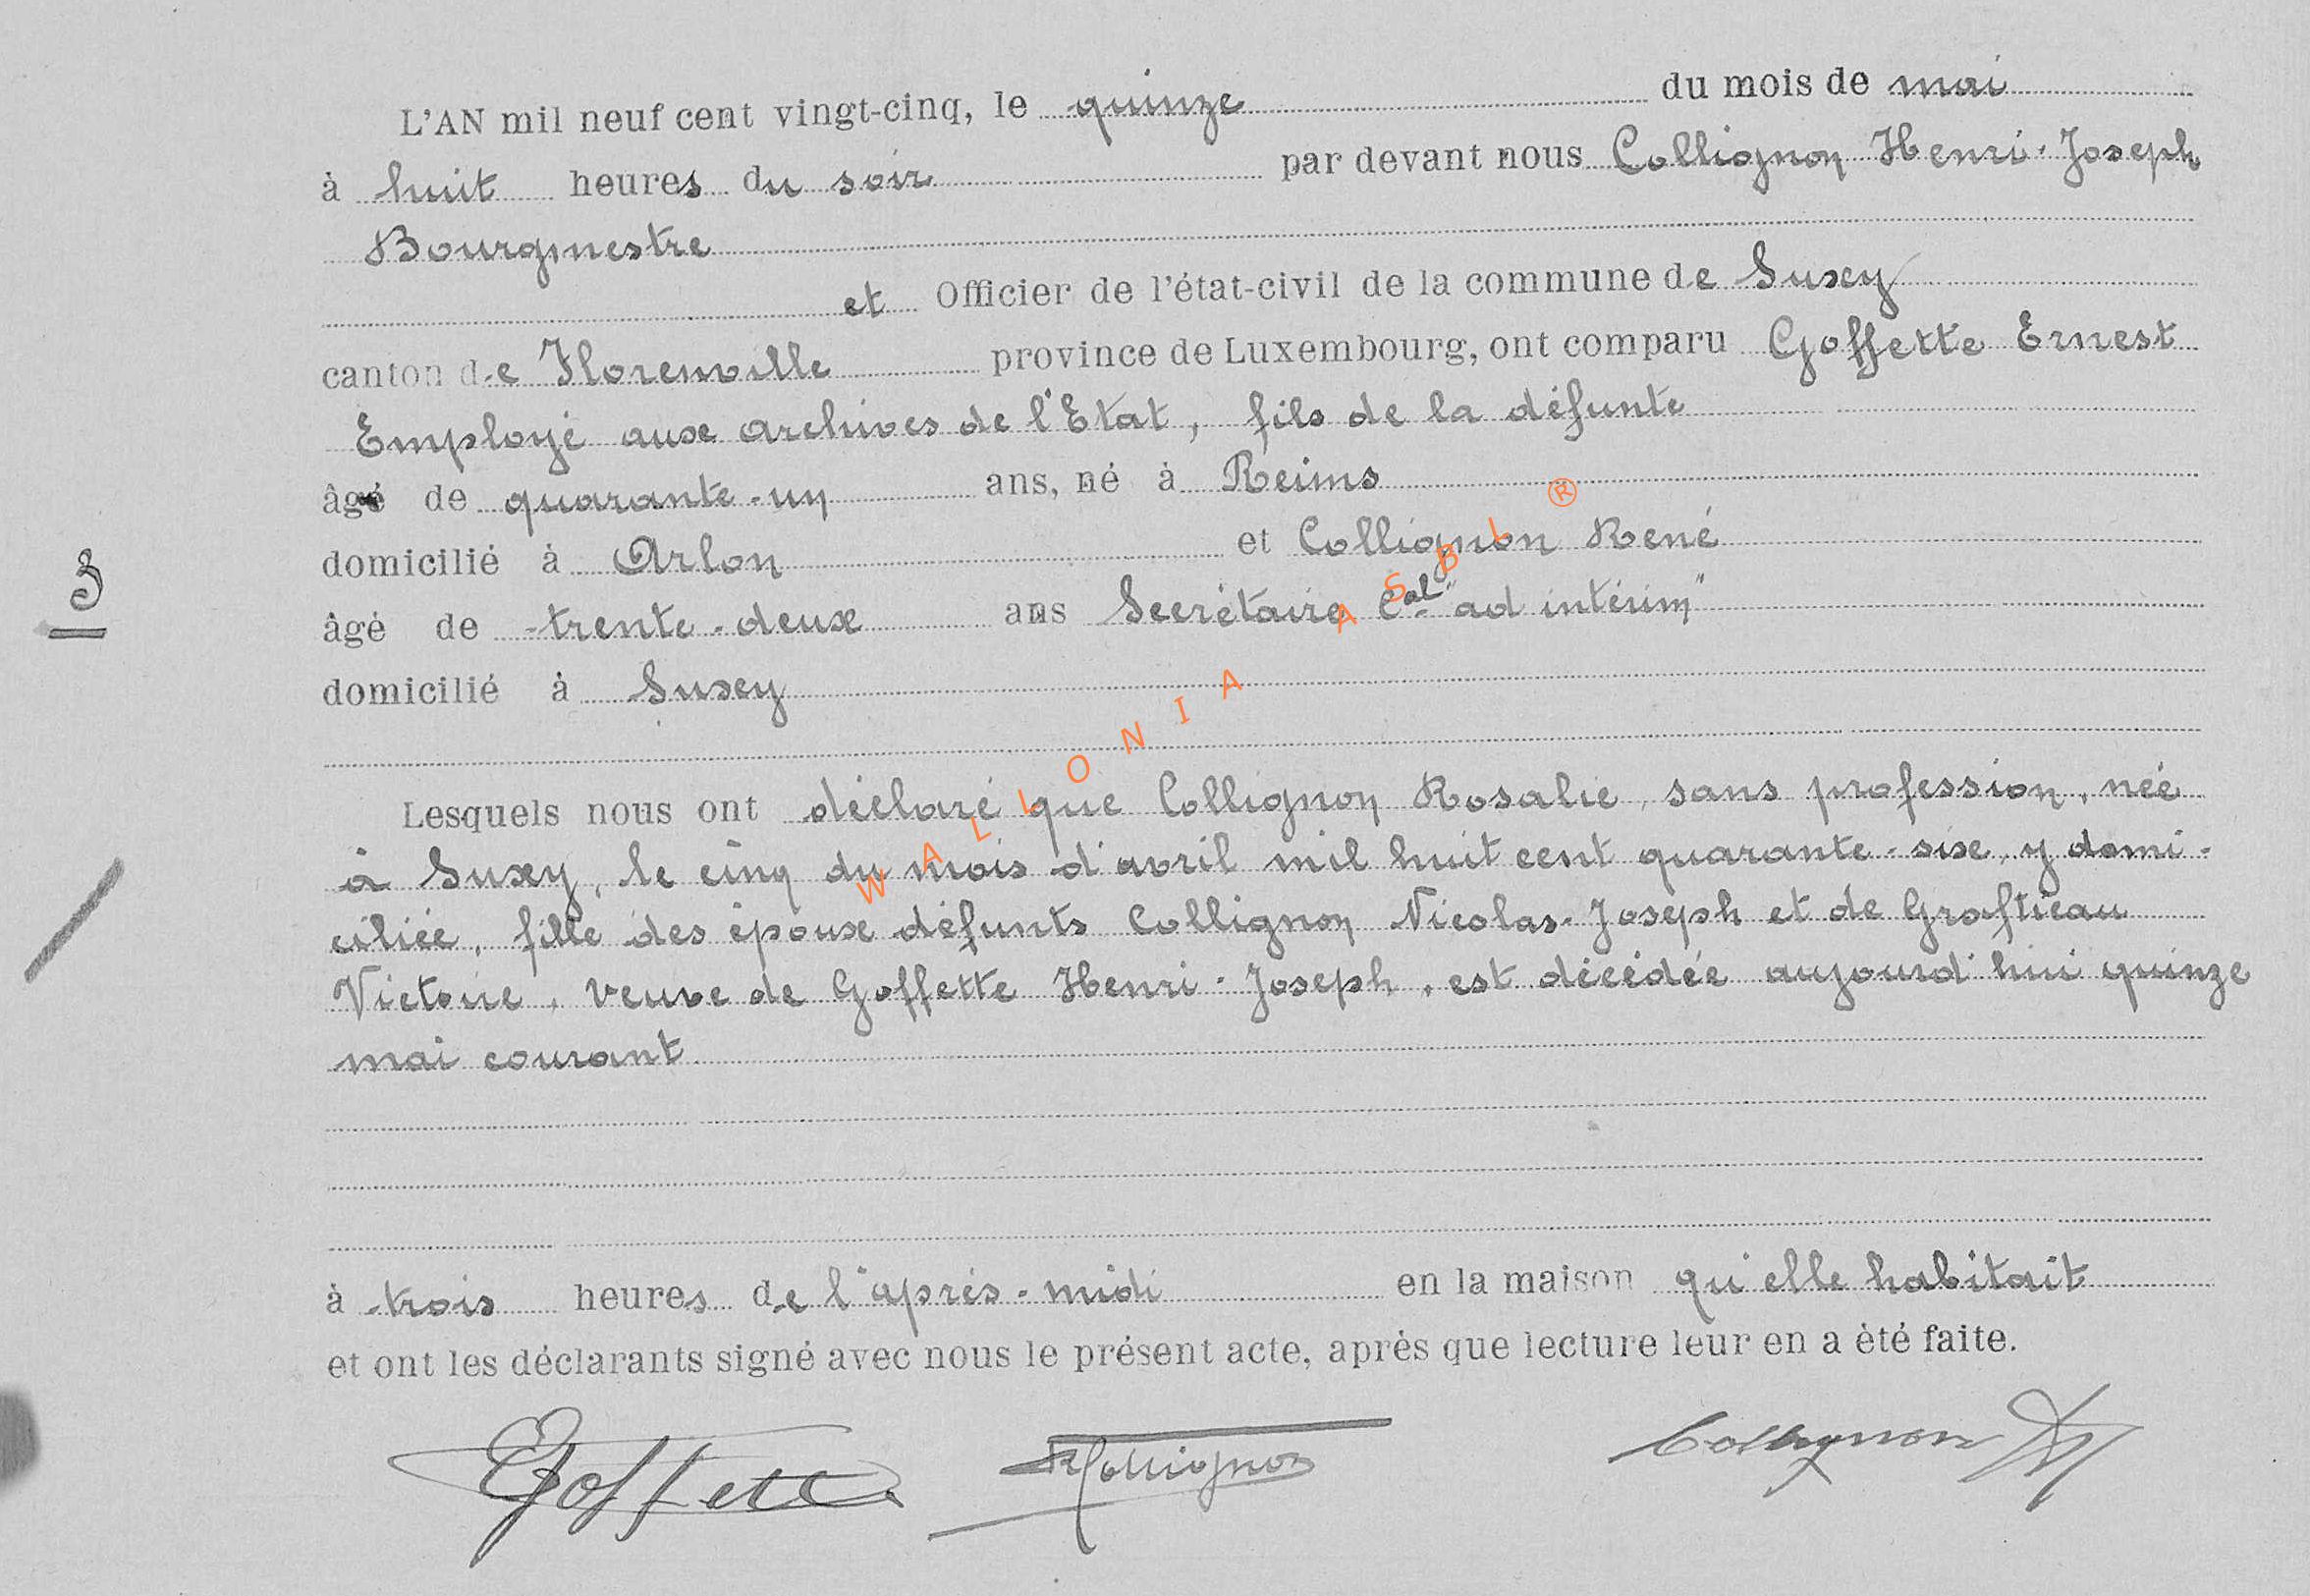 L'AN mil neuf cent vingt-cinq, le quinze du mois de mai
à huit heures du soir par devant nous Collignon Henri-Joseph
Bourgmestre
et Officier de l'état-civil de la commune de Suxy
canton de Florenville province de Luxembourg, ont comparu Goffette Ernest
Employé aux archives de l'Etat, fils de la défunte
âgé de quarante-un ans, né à Reims
domicilié à Arlon et Collignon René
3
âgé de trente-deux ans Secrétaire Cal "ad intérim"
domicilié à Suxy
Lesquels nous ont déclaré que Collignon Rosalie, sans profession, née
à Suxy, le cinq du mois d'avril mil huit cent quarante-six, y domi-
ciliée, fille des époux défunts Collignon Nicolas-Joseph et de Grafticau
Victoire, veuve de Goffette Henri-Joseph, est décédée aujourd'hui quinze
mai courant
à trois heures de l'après-midi en la maison qu'elle habitait
et ont les déclarants signé avec nous le présent acte, après que lecture leur en a été faite.
EGoffette RCollignon Collignon
WALLONIA ASBL ®